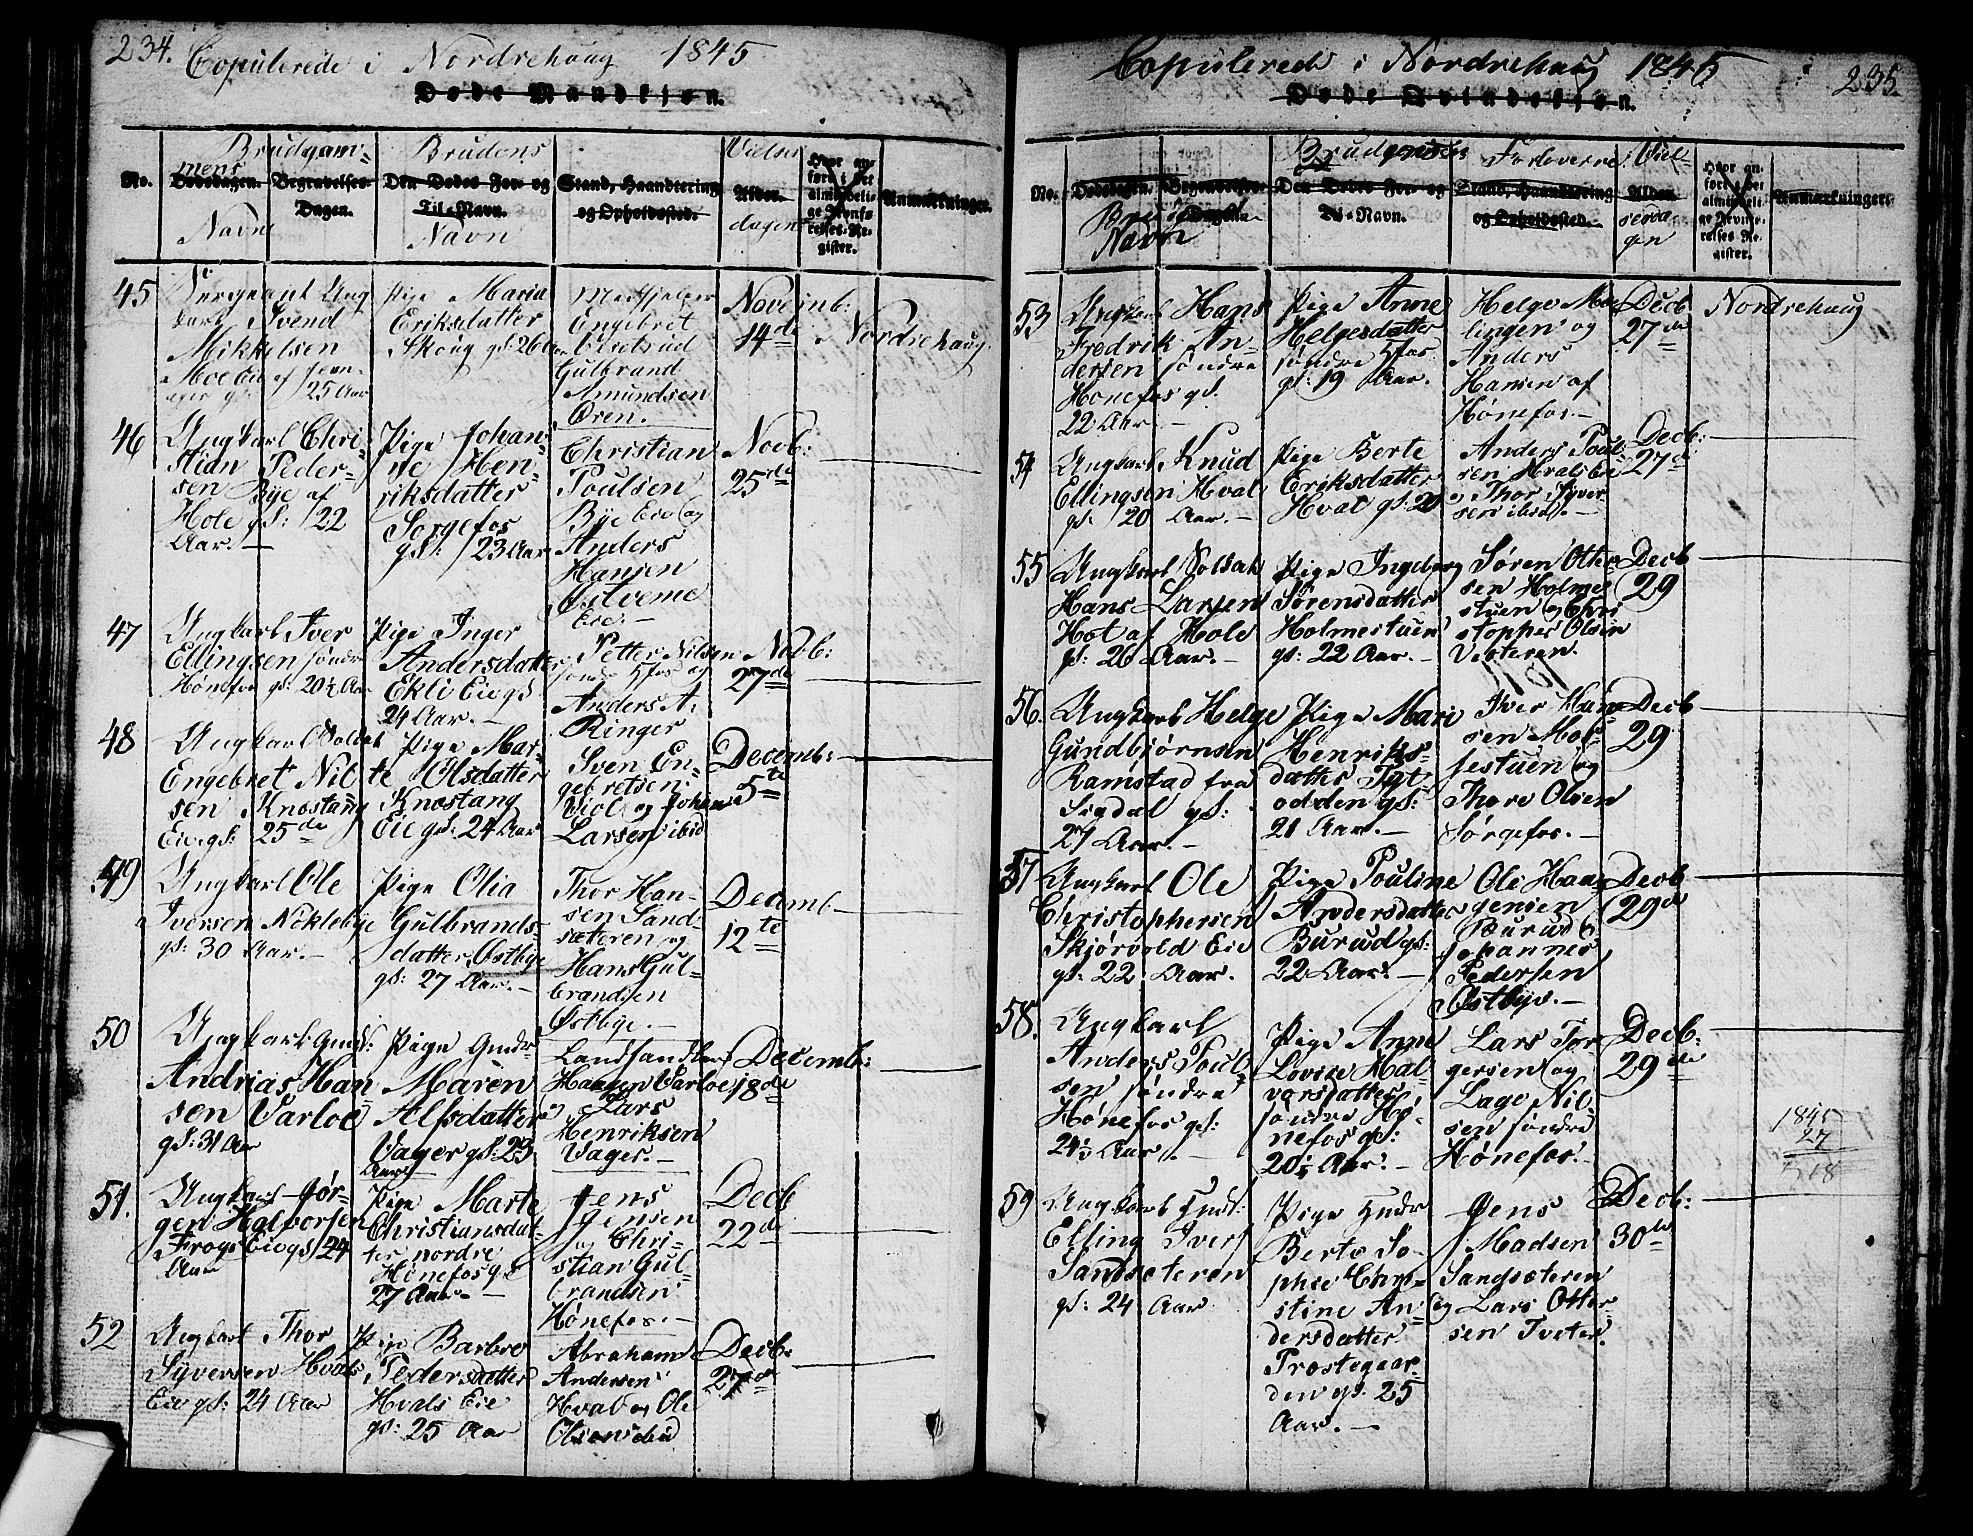 234. Copulerede i Nordrehoug 1845
Døde Mandkjøn.
No.
Brudgom-
mens
Dødsdagen. Begravelses-
Dagen.
Navn
Brudens
Den Dødes For- og
Til-Navn.
Navn
Stand, Haandtering
og Opholdssted.
Vielses
Alder.
dagen
Hvor an-
ført i det
almindeli-
ge Jevnfø-
relses-Re-
gister.
Anmærkninger.
45
Sergeant Ung
karl Svend
Mikkelsen
Moe Eie af
25 Aar
Pige Maria
Eriksdatter
Skoug gl: 26 Aar
Medhjelper
Engebret
Gulbrand
Amundsen
Øren.
Novemb:
14de
Nordrehoug
46
Ungkarl Chri-
stian Peder-
sen Bye af
Hole gl: 22
Aar. —
Pige Johan-
ne Hen-
riksdatter
Sorgefos
gl: 23 Aar
Christian
Poulsen
Bye Eie og
Anders
Hansen
Eie. —
Novb:
25de
47
Ungkarl Iver
Ellingsen søndre
Hønefos gl: 20½ Aar
Pige Inger
Andersdatter
Ekli Eie gl
24 Aar. —
Petter Nilsen
søndre Hfos og
Anders A.
Ringer
Novb:
27de
48
Ungkarl Soldat
Engebret Nil-
sen Knestang
Eie gl: 25de
Pige Mar-
te Olsdatter
Knestang
Eie gl: 24 Aar
Sven En-
gebretsen
Viol og Johannes
Larsen ibid
Decemb:
5te
49
Ungkarl Ole
Iversen Nøklebye
gl: 30 Aar. —
Pige Olia
Gulbrands-
datter Østbye
gl: 27 Aar. —
Thor Han-
sen Sand-
sæteren og
Hans Gul-
brandsen
Østbye. —
Decemb
12te
50
Ungkarl Gmd:
Andrias Han
sen Varloe
gl: 31 Aar
Pige Gmdr
Maren
Alfsdatter
Vager gl: 23
Aar
Landhandler
Hansen Varloe
og Lars
Henriksen
Vager. —
Decemb:
18de
51.
Ungkarl Jør-
gen Halvorsen
Frogs Eie gl 24
Aar
Pige Marte
Christiansdat-
ter nordre
Hønefos gl
27 Aar. —
Jens
Jensen
og Chri-
stian Gul-
brandsen
Hønefos. —
Decb
22de
52
Ungkarl Thor
Syversen Hvals
Eie gl: 24 Aar
Pige Barbro
Pedersdatter
Hvals Eie
gl: 25 Aar
Abraham
Andersen
Hval og Ole
Olsen ibid
Decb.
27de
Copulerede i Nordrehoug 1845
235.
Døde Qvindekjøn.
No.
Dødsdagen. Begravelses-
Dagen.
Navn
Den Dødes For- og
Til-Navn.
Forloverne
Stand, Haandtering
og Opholdssted.
Viel-
Alder.
sesda-
gen
Hvor an-
ført i det
almindeli-
ge Jevnfø-
relses-Re-
gister.
Anmærkninger.
53
Ungkarl Hans
Fredrik An-
dersen søndre
Hønefos gl.
22 Aar. —
Pige Anne
Helgesdatter
søndre Hfos
gl: 19 Aar.
Helge Mo-
lingen og
Anders
Hansen af
Hønefos. —
Decb
27de
Nordrehoug
54
Ungkarl Knud
Ellingsen Hval
gl: 20 Aar. —
Pige Berte
Eriksdatter
Hval gl: 20
Anders Poul-
sen Hvals Eie
og Thor Syver
sen ibid. —
Decb:
27de
55
Ungkarl Soldat
Hans Larsen
Hot af Hole
gl: 26 Aar. —
Pige Ingeborg
Sørensdatter
Holmestuen
gl: 22 Aar. —
Søren Otte
sen Holme
stuen og Chri
stopher Olsen
Vesteren.
Decb
29
56.
Ungkarl Helge
Gundbjørnsen
Ramstad fra
Sigdal gl:
27 Aar. —
Pige Mari
Henriks-
datter
odden gl:
21 Aar. —
Iver Han
sen Mos-
sestuen og
Thore Olsen
Sørgefos. —
Decb
29
57
Ungkarl Ole
Christophersen
Skjørvold Eie
gl: 22 Aar.
Pige Pouline
Andersdatter
Burud gl:
22 Aar. —
Ole Haa-
gensen
Burud &
Johannes
Pedersen
Østbye. —
Decb
29de
58.
Ungkarl
Anders Poul-
sen søndre
Hønefos gl:
24½ Aar. —
Pige Anne
Lovise Hal-
vorsdatter
søndre Hø-
nefos gl:
20½ Aar. —
Lars Tor
gersen og
Lage Nil-
sen søndre
Hønefos. —
Decb:
29de
1845
27
1818
59
Ungkarl Gmdr.
Elling Ivers
Sandsæteren
gl: 24 Aar
Pige Gmdr
Berte So-
phie Chri-
stine An-
dersdatter
Prostegaar
den gl: 25
Aar. —
Jens
Madsen
Sandsæteren
og Lars Otter
sen Tveter.
Decb:
30te